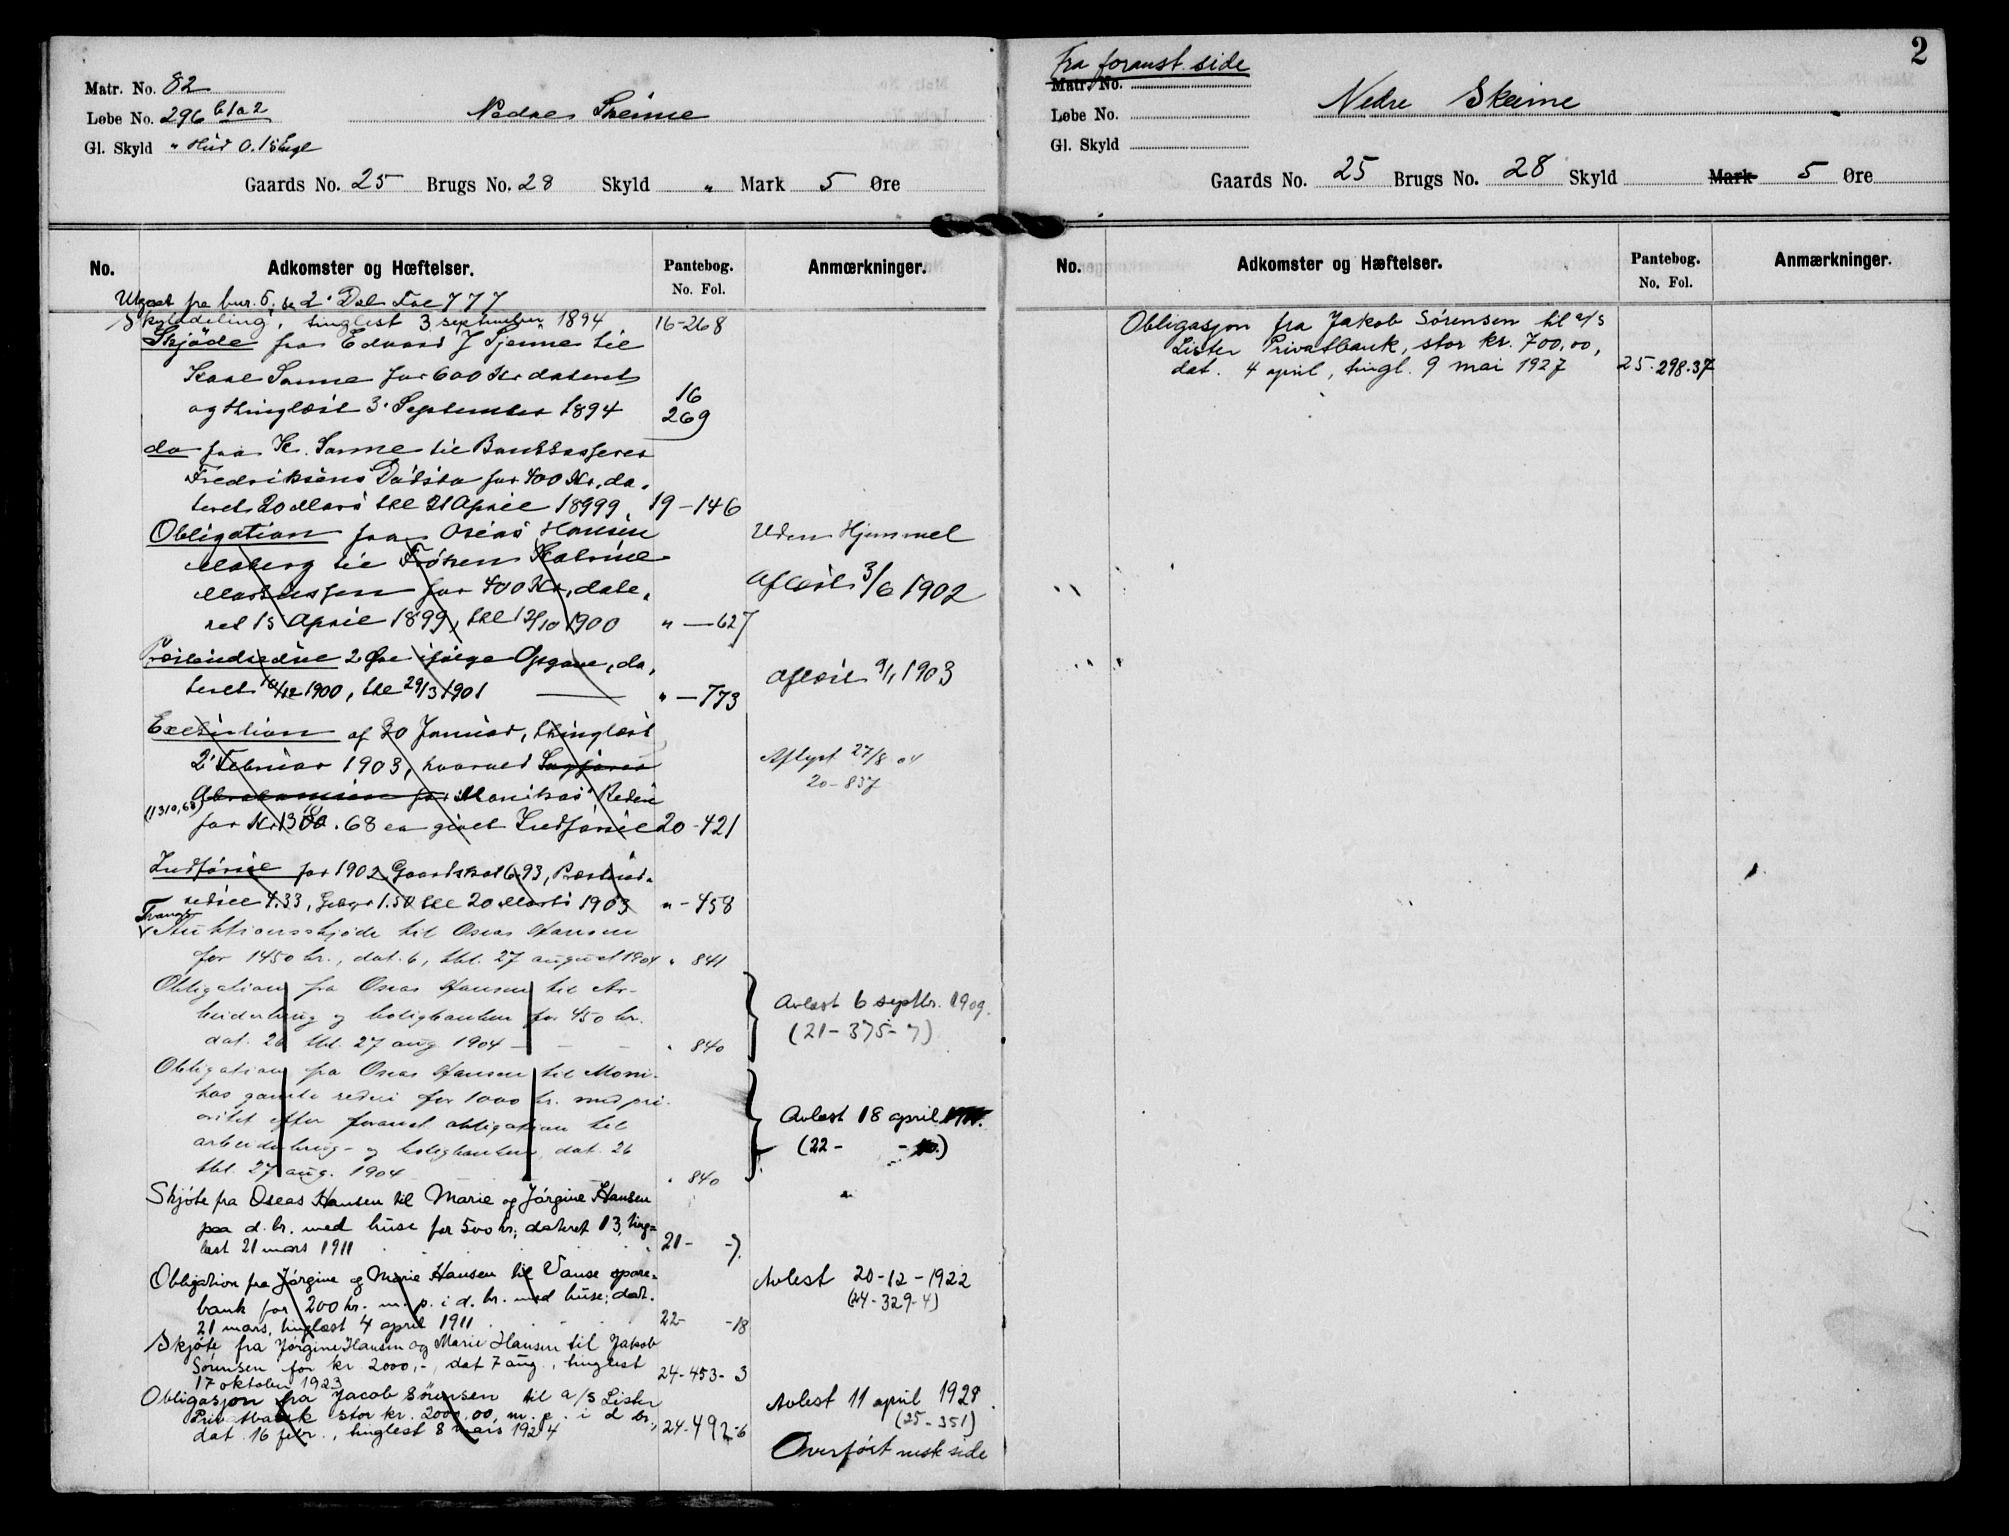 Matr. No. 82
Løbe No. 296 b 1 a 2
Nedre Skeime
Gl. Skyld " Hud 0. 15 Engl
Gaards No. 25 Brugs No. 28 Skyld " Mark 5 Øre
No. Adkomster og Hæftelser. Pantebog. No. Fol. Anmærkninger.
Utgaat fra bur. 5, se 2' Del Fol 777
Skylddeling, tinglest 3 september 1894 16-268
Skjøde fra Edvard J Sjeime til
Kaal Sanne for 600 Kr dateret
og thinglæst 3' September 1894 16 269
do fra K. Sanne til Bankkasserer
Fredriksens Dødsbo for 400 Kr. da-
teret 20 Mars thl 21 April 18999. 19-146
Obligation fra Oseas Hansen Uden Hjemmel
Moberg til Frøken Katrine
Martinssen for 400 Kr, date- Aflæst 3/6 1902
ret 15 April 1899, thl 12/10 1900 " — 627
Præsteindredsel 2 Øre ifølge Opgave, da-
teret 18/12 1900, thl 29/3 1901 " — 773 Aflæst 9/1 1903
Exekution af 30 Januar, thinglæst
2' Februar 1903, hvorved Sagfører Aflyst 27/8 04
Abrahamsen for "Monikas" Rederi 20-837
(1310,68)
for Kr 1300.68 er givet Indførsel 20-421
Indførsel for 1902 Gaardskat 6.93, Præsteind-
redsel 4.33, Gebyr 1.50 thl 20 Marts 1903 " - 458
Tvangs-
Auktionsskjøde til Oseas Hansen
for 1450 kr., dat. 6, thl. 27 august 1904 " 841
Obligation fra Oseas Hansen til Ar-
beiderbrug og boligbanken for 450 kr. Avlæst 6 septbr. 1909.
dat. 26 thl. 27 aug 1904 — — — " 840 (21-375-7)
Obligation fra Oseas Hansen til Moni-
kas gamle rederi for 1000 kr. med pri-
oritet efter foranst obligation til Avlæst 18 april
arbeiderbrug- og boligbanken, dat. 26 (22- - )
thl. 27 aug. 1904 " 840
Skjøte fra Oseas Hansen til Marie og Jørgine Hansen
paa d. br. med huse for 500 kr; dateret 13, ting-
læst 21 mars 1911 21- -7.
Obligation fra Jørgine og Marie Hansen til Vanse spare- Avlest 20-12-1922
bank for 200 kr. m. p. i d. br. med huse; dat. (24-329-4)
21 mars, tinglæst 4 april 1911 22- -18
Skjøte fra Jørgine Hansen og Marie Hansen til Jakob
Sørensen for kr 2000,-, dat 7 aug., tinglest
17 oktober 1923 24-453-3
Obligasjon fra Jacob Sørensen til a/s Lister Avlest 11 april 1928.
Privatbank stor kr. 2000,00, m. p. i d br., (25-351)
dat. 16 febr., tinglest 8 mars 1924 24-492-6
Overført nesk side
2
Fra foranst. side
Matr. No.
Løbe No.
Nedre Skeime
Gl. Skyld
Gaards No. 25 Brugs No. 28 Skyld Mark 5 Øre
No. Adkomster og Hæftelser. Pantebog. No. Fol. Anmærkninger.
Obligasjon fra Jakob Sørensen til a/s
Lister Privatbank, stor kr. 700,00,
dat. 4 april, tingl. 9 mai 1927 25-298-37